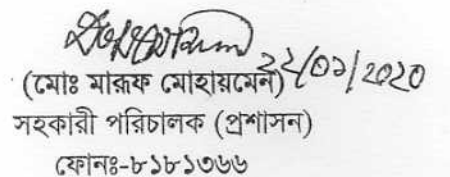 ২২/০১/২০২০
(মোঃ মারুফ মোহায়মেন)
সহকারী পরিচালক (প্রশাসন)
ফোনঃ-৮১৮১৩৬৬